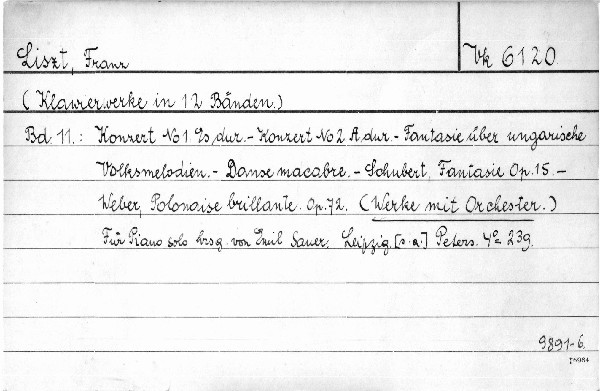 Liszt, Franz
Vk 6120
(Klavierwerke in 12 Bänden.)
Bd. 11.: Konzert No 1 Es dur. - Konzert No 2 A dur. - Fantasie über ungarische
Volksmelodien. - Danse macabre. - Schubert, Fantasie Op. 15. -
Weber, Polonaise brillante. Op. 72. (Werke mit Orchester.)
Für Piano solo hrsg. von Emil Sauer. Leipzig [s. a.] Peters. 4° 239.
9891-6.